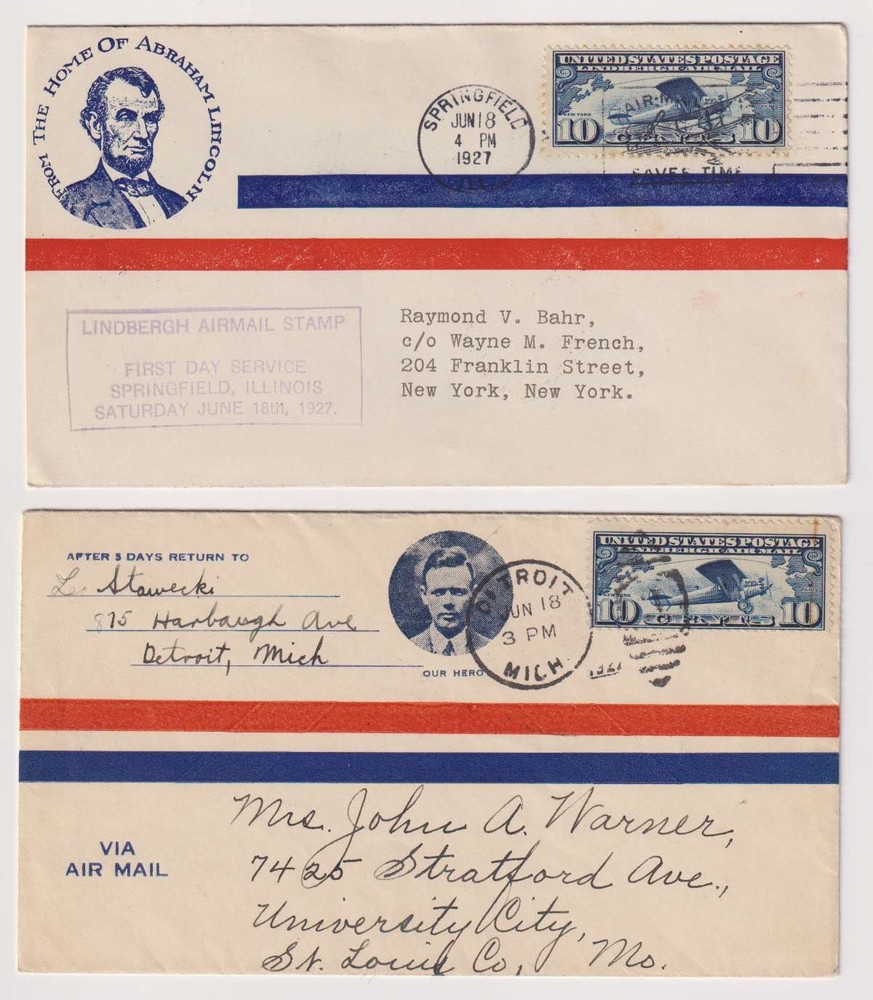 FROM THE HOME OF ABRAHAM LINCOLN
SPRINGFIELD
JUN 18
4 PM
1927
ILL
UNITED STATES POSTAGE
LINDBERGH AIR MAIL
AIR MAIL
NEW YORK
10 CENTS 10
SAVES TIME
LINDBERGH AIRMAIL STAMP
FIRST DAY SERVICE
SPRINGFIELD, ILLINOIS
SATURDAY JUNE 18th, 1927.
Raymond V. Bahr,
c/o Wayne M. French,
204 Franklin Street,
New York, New York.
AFTER 5 DAYS RETURN TO
Stawecki
875 Harbaugh Ave
Detroit, Mich
OUR HERO
DETROIT
JUN 18
3 PM
MICH.
1927
UNITED STATES POSTAGE
LINDBERGH AIR MAIL
10 CENTS 10
VIA
AIR MAIL
Mrs. John A. Warner,
7425 Stratford Ave.,
University City,
St. Louis Co., Mo.